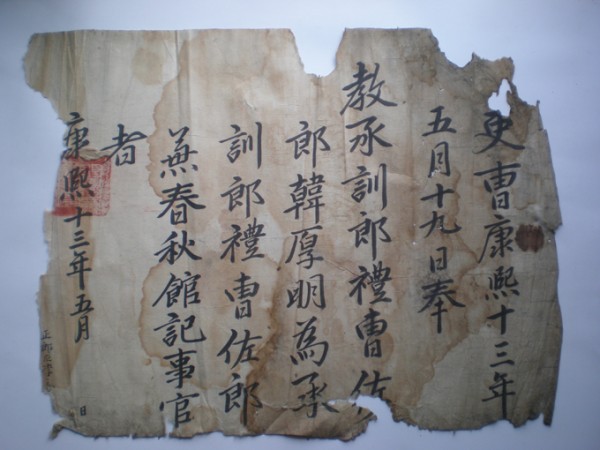 吏曹康熙十三年
五月十九日奉
教承訓郎禮曹佐
郎韓厚明為承
訓郎禮曹佐郎
兼春秋館記事官
者
康熙十三年五月 日
正郎